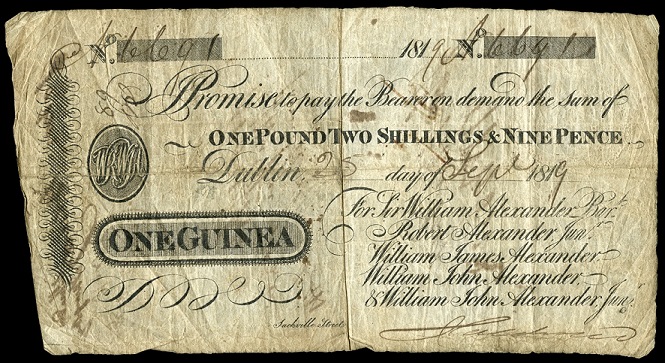 No. 16691 1819 No. 16691
I Promise to pay the Bearer on demand the sum of
ONE POUND TWO SHILLINGS & NINE PENCE
Dublin, 25 day of Sepr 1819
For Sir William Alexander Bart.
Robert Alexander Junr.
William James Alexander
William John Alexander
& William John Alexander, Junr.
ONE GUINEA
Sackville Street